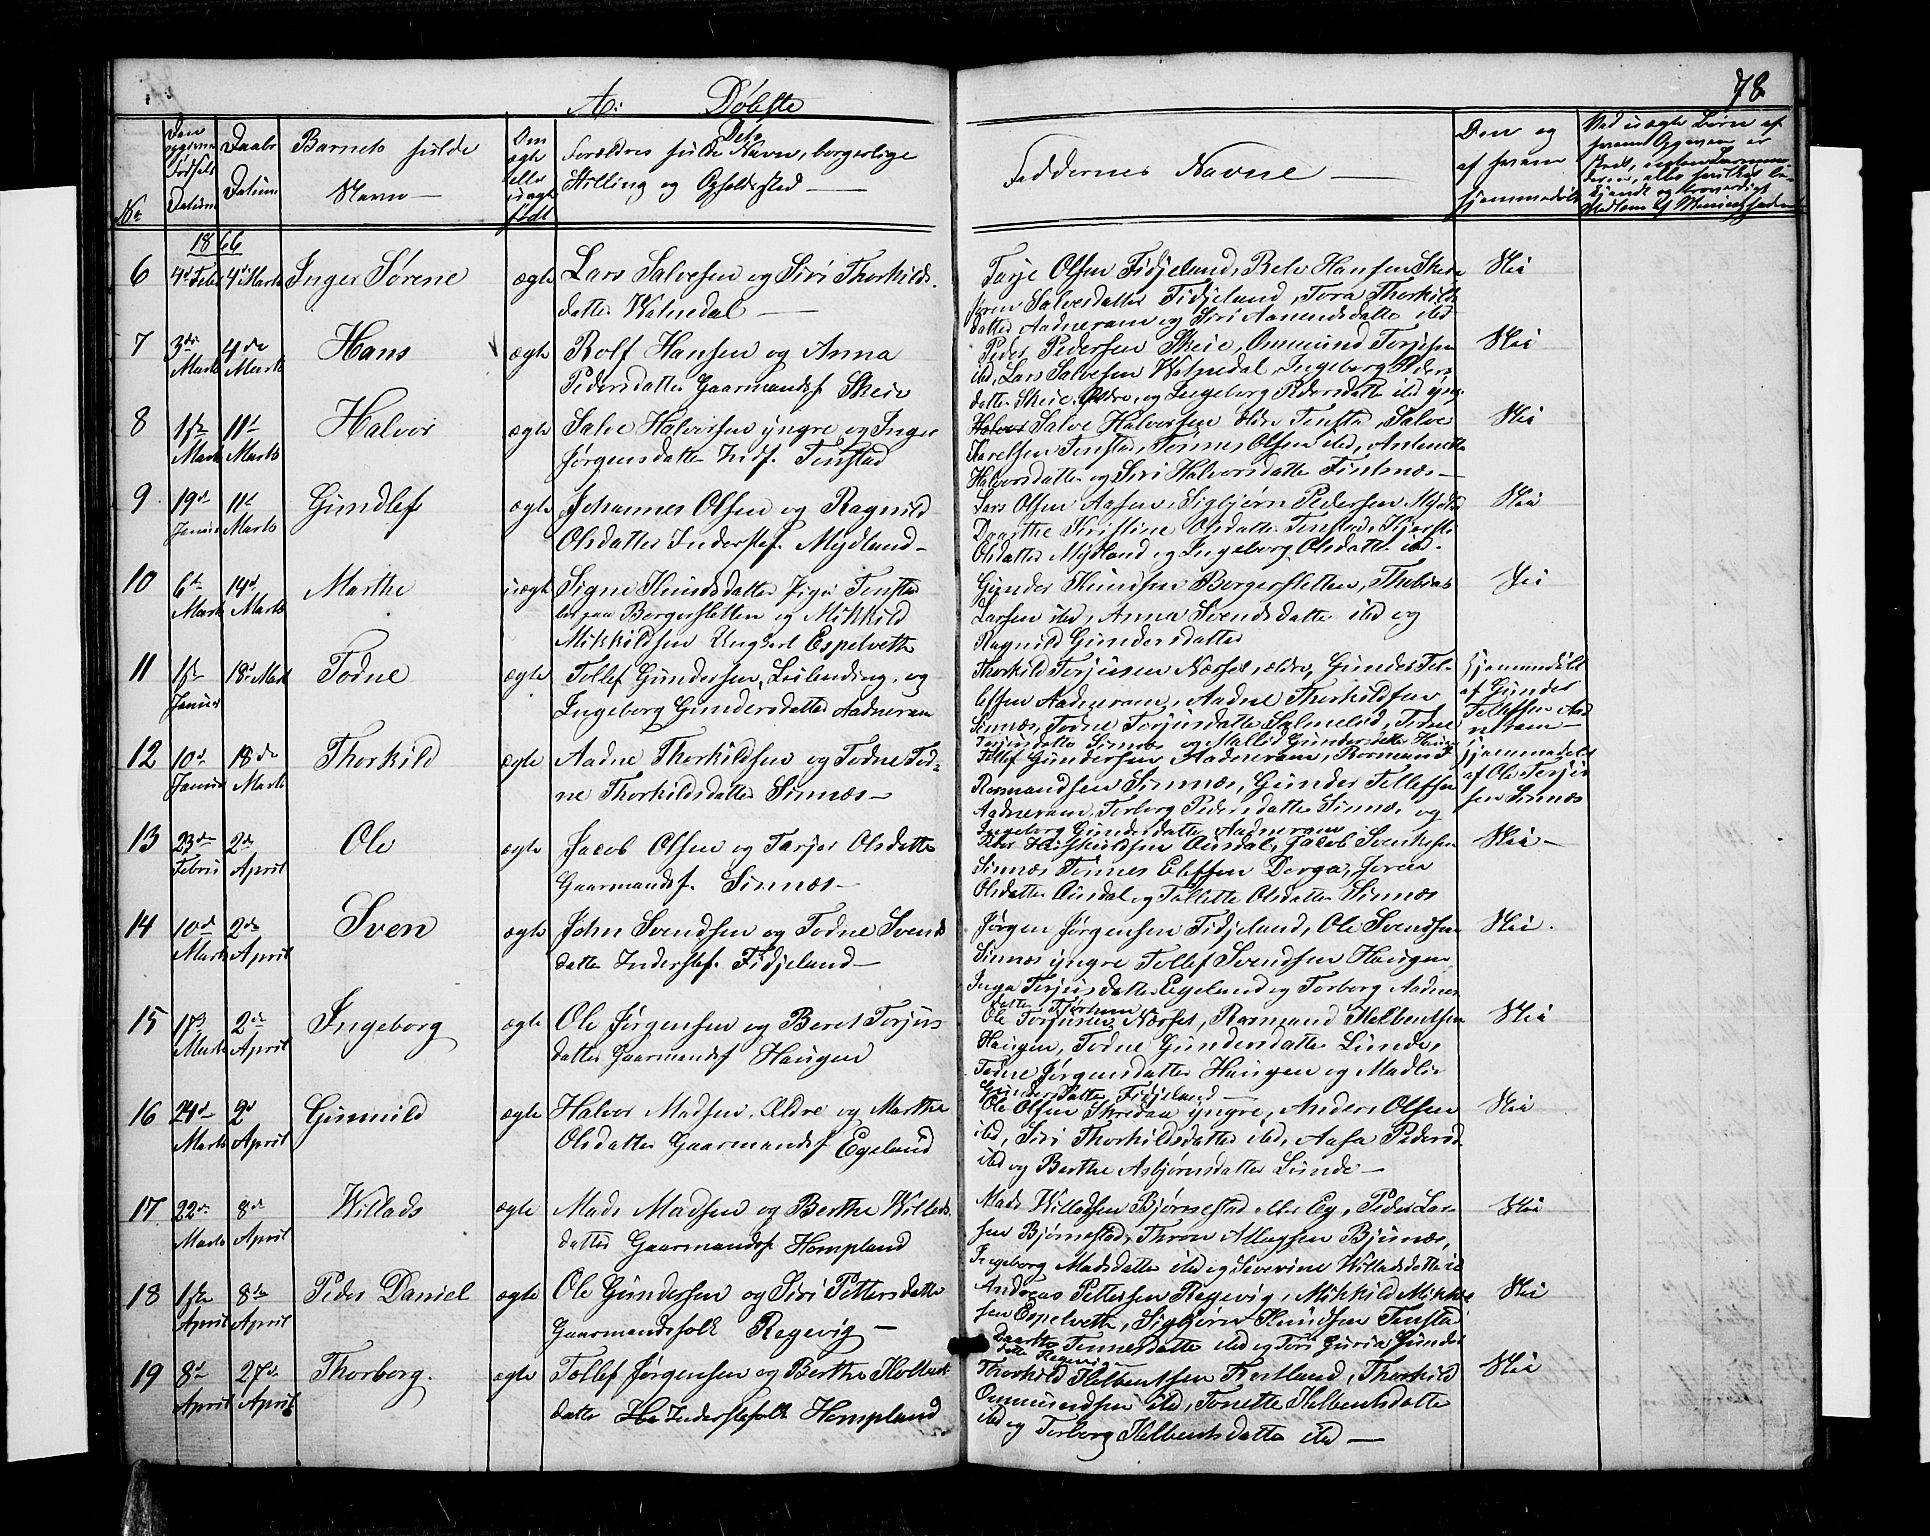 78
A: Døbte
No
Den opgivne Fødsels Datum
Daabs Datum
Barnets fulde Navn
Om ægte eller uægte født
Forældres fulde Navn, borgerlige
Stilling og Opholdssted
Faddernes Navne
Om og
af hvem
hjemmedøbt
1866
6 4de Febr 4de Marts Inger Sørene ægte Lars Salvesen og Siri Thorkilds
datter Wolnedal
Tarje Olsen Fidjeland, Rolv Hansen Skeie
Salvesdatter Fidjeland, Tora Thorkilds
datter Aadneram og Siri Aanensdatter ibd
Nei
7 3de Marts 4de Marts Hans ægte Rolf Hansen og Anna
Pedersdatter Gaarmandsf. Skeie
Peder Pedersen Skeie, Ommund Torjesen
ibd, Lars Salvesen Wolnedal, Ingeborg Peders
datter Skeie Ældre, og Ingeborg Pedersdatter ibd yng.
Nei
8 1ste Marts 11te Marts Halvor ægte Salve Halvorsen yngre og Inger
Jørgensdatter Indf. Tinstad
Salve Halvorsen Tinsta, Salve
Karelsen Tinstad, Tønnes Olsen ibd, Antonette
Halvorsdatter og Siri Halvorsdatter Fintnæs
Nei
9 19de Januar 11te Marts Gundlef ægte Johannes Olsen og Ragnild
Olsdatter Inderstef. Mydland
Lars Olsen Aasen, Sigbjørn Pedersen Mydla
Daarthe Kristine Olsdatter Tinstad, Kjersti
Olsdatter Mydland og Ingeborg Olsdatter ibd.
Nei
10 6te Marts 14de Marts Marthe uægte Signe Knudsdatter Pige Tinstad
paa Borgersletten og Mikkild
Mikkildsen Ungkarl Espelvette
Gunder Knudsen Borgersletten, Thobias
Larsen ibd, Anna Svendsdatter ibd og
Ragnild Gundersdatter
Nei
11 1ste Januar 18de Marts Todne ægte Tollef Gundersen, Leilending, og
Ingeborg Gundersdatter Aadneram
Thorkild Torjusen Næsset, ældre, Gunder Tol-
lefsen Aadneram, Aadne Thorkildsen
Sinnæs, Todne Torjusdatter, Todne
Torjusdatter Sinnæs og Mallid Gundersdatter Haugen
hjemmedøbt
af Gunder
Tollefsen Aad
neram
12 10de Januar 18de Marts Thorkild ægte Aadne Thorkildsen og Todne Tod-
ne Thorkildsdatter Sinnæs
Tollef Gundersen Aadneram, Rosmund
Rosmundsen Sinnæs, Gunder Tollefsen
Aadneram, Torborg Pedersdatter Sinnæs og
Ingeborg Gundersdatter Aadneram
hjemmedøbt
af Ole Torju
sen Sinnæs
13 23de Febru 2de April Ole ægte Jacob Olsen og Tarjer Olsdatter
Gaarmandsf. Sinnæs
Peder Ousdal, Jacob Svenkesen
Sinnæs Tønnes Elefsen Dorga, Joren
Olsdatter Ousdal og Tollette Olsdatter Sinnæs
Nei
14 10de Marts 2de April Sven ægte John Svendsen og Todne Svends
datter Inderstef. Fidjeland
Jørgen Jørgensen Fidjeland, Ole Svendsen
Sinnæs yngre Tollef Svendsen Haugen
Inga Torjusdatter Egeland og Torborg Aadnes
datter
Nei
15 17de Marts 2de April Ingeborg ægte Ole Jørgensen og Beret Torjus
datter Gaarmandsf Haugen
Ole Torjusen Næsset, Rosmund Helbentsen
Haugen, Todne Gundersdatter Lunde,
Todne Jørgensdatter Haugen og Madli
Gundersdatter Fidjeland
Nei
16 24de Marts 2de April Gunnild ægte Halvor Madsen Ældre og Marthe
Olsdatter Gaarmandsf Egeland
Ole Olsen Skredaa yngre, Anders Olsen
ibd, Siri Thorkildsdatter ibd, Aasa Pedersd
ibd og Berthe Asbjørnsdatter Lunde
Nei
17 22de Marts 8de April Willads ægte Mads Madsen og Berthe Willads
datter Gaarmandsf Hompland
Mads Willadsen Bjørnestad eller Eg, Peder Lar
sen Bjørnestad, Thron Bjunæs,
Ingeborg Madsdatter ibd og Severine Willadsdatter ibd
Nei
18 1ste April 8de April Peder Daniel ægte Ole Gundersen og Siri Pettersdatter
Gaarmandsfolk Regevig
Andreas Pettersen Regevig, Mikkild Mikkild
sen Espelvette, Sigbjørn Knudsen Tinstad
Daarthe Tønnesdatter ibd og Tori Guria Gunders
datter Regevig
Nei
19 8de April 27de April Thorborg. ægte Tollef Jørgensen og Berthe Holbent
datter Inderstefolk Hompland
Thorkild Helbentsen Kvetland, Thorkild
Ommundsen ibd, Tonette Helbentsdatter
ibd og Torborg Helbentsdatter ibd
Nei